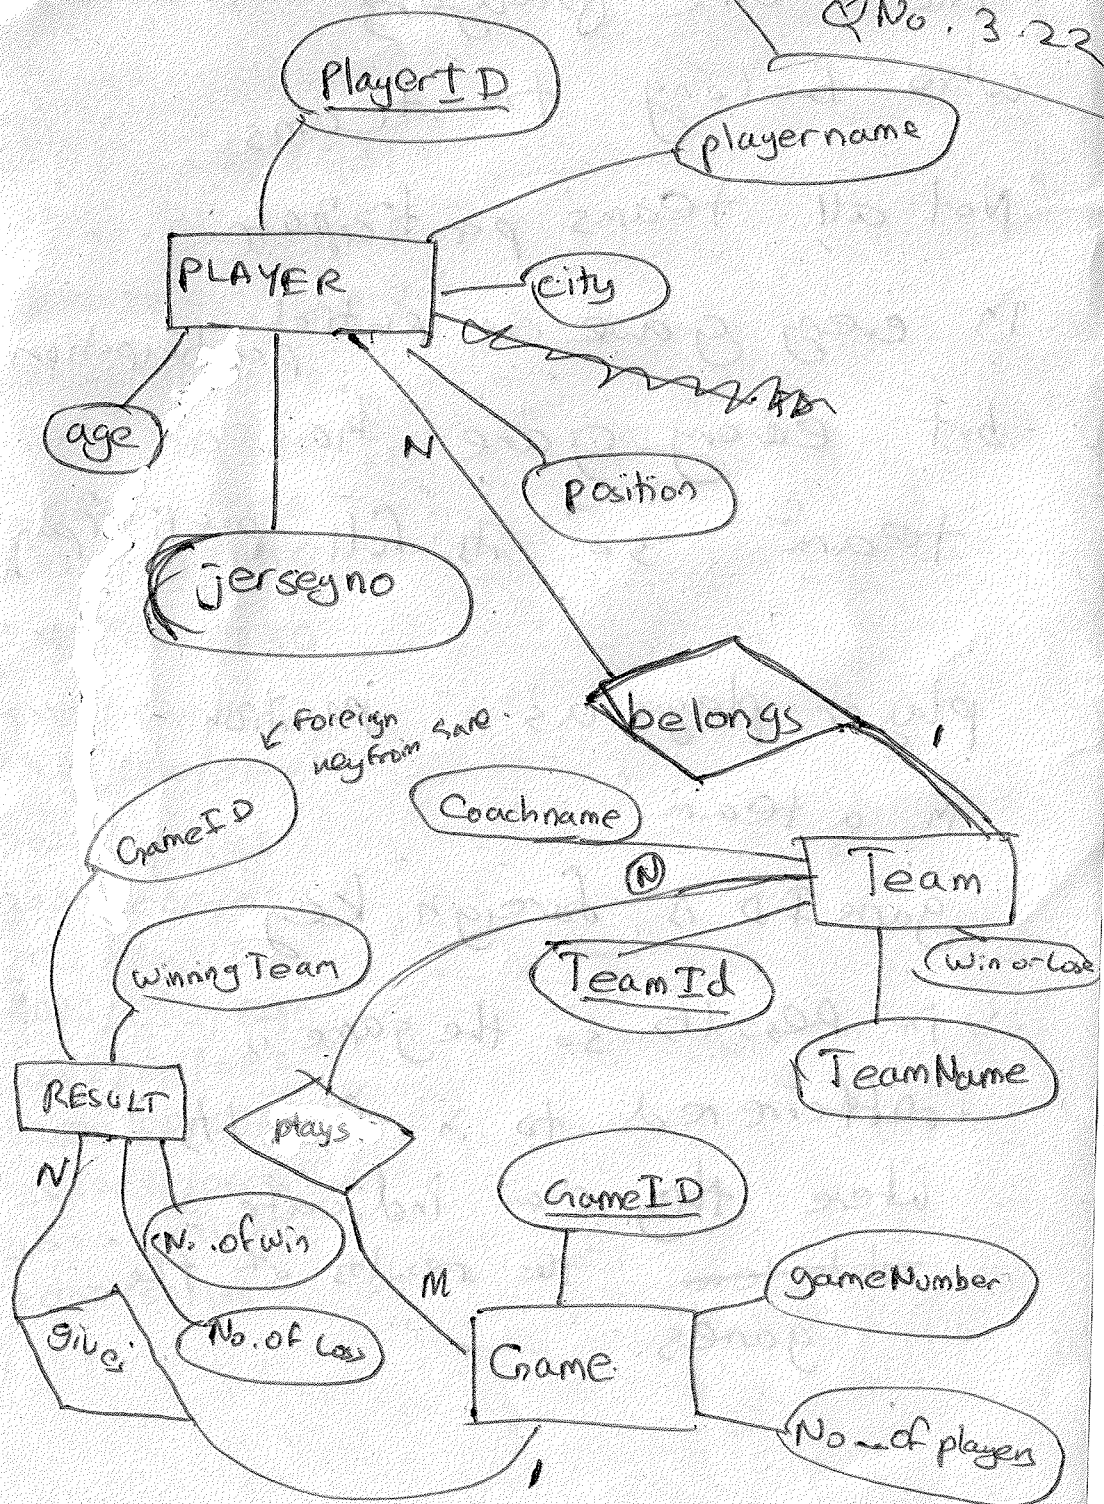 QNo. 3.22
PlayerID
playername
PLAYER
city
age
N
position
jerseyno
belongs
1
Foreign
key from
GameID
Coachname
N
Team
winningTeam
TeamId
Win or Lose
TeamName
RESULT
plays
N
GameID
No. of win
M
gameNumber
give
No. of Loss
Game
No_of players
1